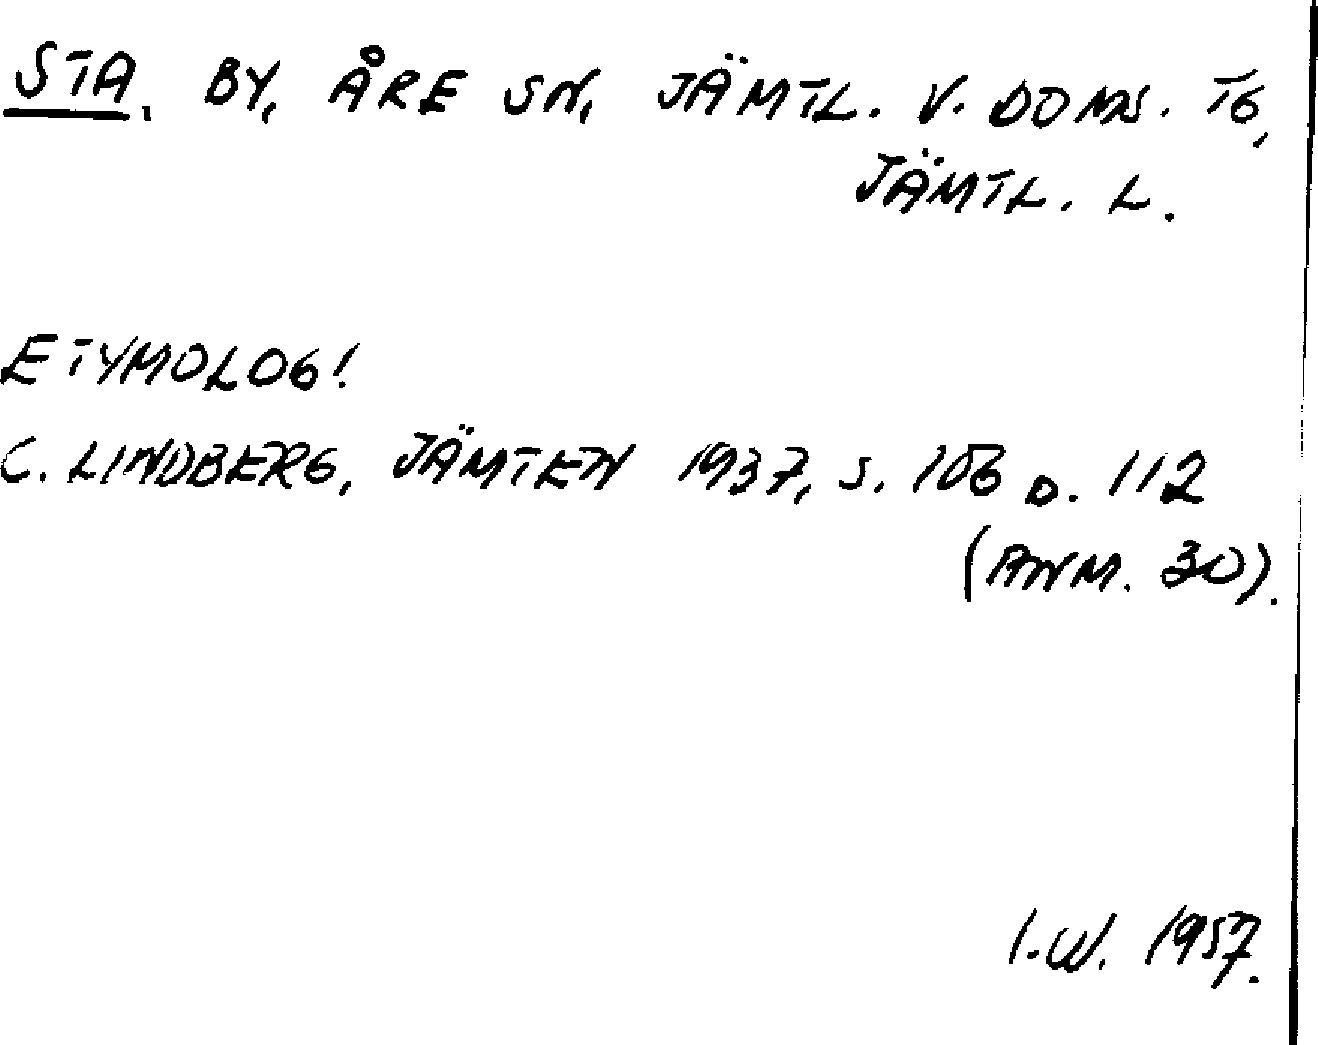 STA. BY, ÅRE SN, JÄMTL. V. DOMS. TG,
JÄMTL. L.
ETYMOLOGI
C. LINDBERG, JÄMTEN 1937, S. 106 O. 112
(ANM. 30).
I.W. 1957.